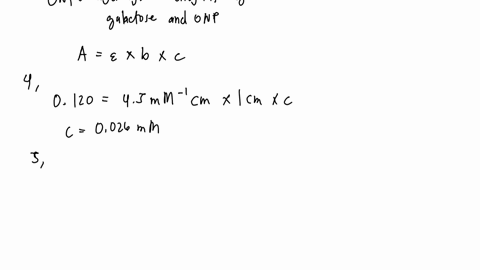 galactose and ONP
A = ε x b x c
4,
0.120 = 4.5 mM⁻¹ cm x 1 cm x c
c = 0.026 mM
5,